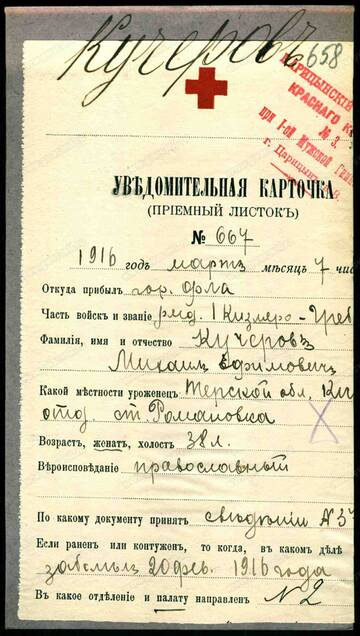 Кучеровъ
658
ЦАРИЦЫНСКІЙ
КРАСНАГО К
№ 3.
при 1-ой МУЖСКОЙ Гим
г. Царицын
УВѢДОМИТЕЛЬНАЯ КАРТОЧКА
(ПРІЕМНЫЙ ЛИСТОКЪ)
№ 667
1916 годъ мартъ мѣсяцъ 7 чис
Откуда прибылъ гор. Орла
Часть войскъ и званіе ряд. 1 Кизляро-Греб
Фамилія, имя и отчество Кучеровъ
Михаилъ Ефимовичъ
Какой мѣстности уроженецъ Терской обл. Ки
отд ст. Романовка
Возрастъ, женатъ, холостъ 38 л.
Вѣроисповѣданіе православный
По какому документу принятъ свѣдѣнiи № 3
Если раненъ или контуженъ, то когда, въ какомъ дѣлѣ
заболѣлъ 20 фев. 1916 года
Въ какое отдѣленіе и палату направленъ №2